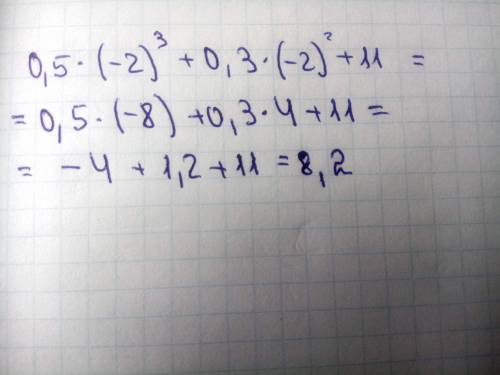 0,5 · (-2)³ + 0,3 · (-2)² + 11 =
= 0,5 · (-8) + 0,3 · 4 + 11 =
= - 4 + 1,2 + 11 = 8,2